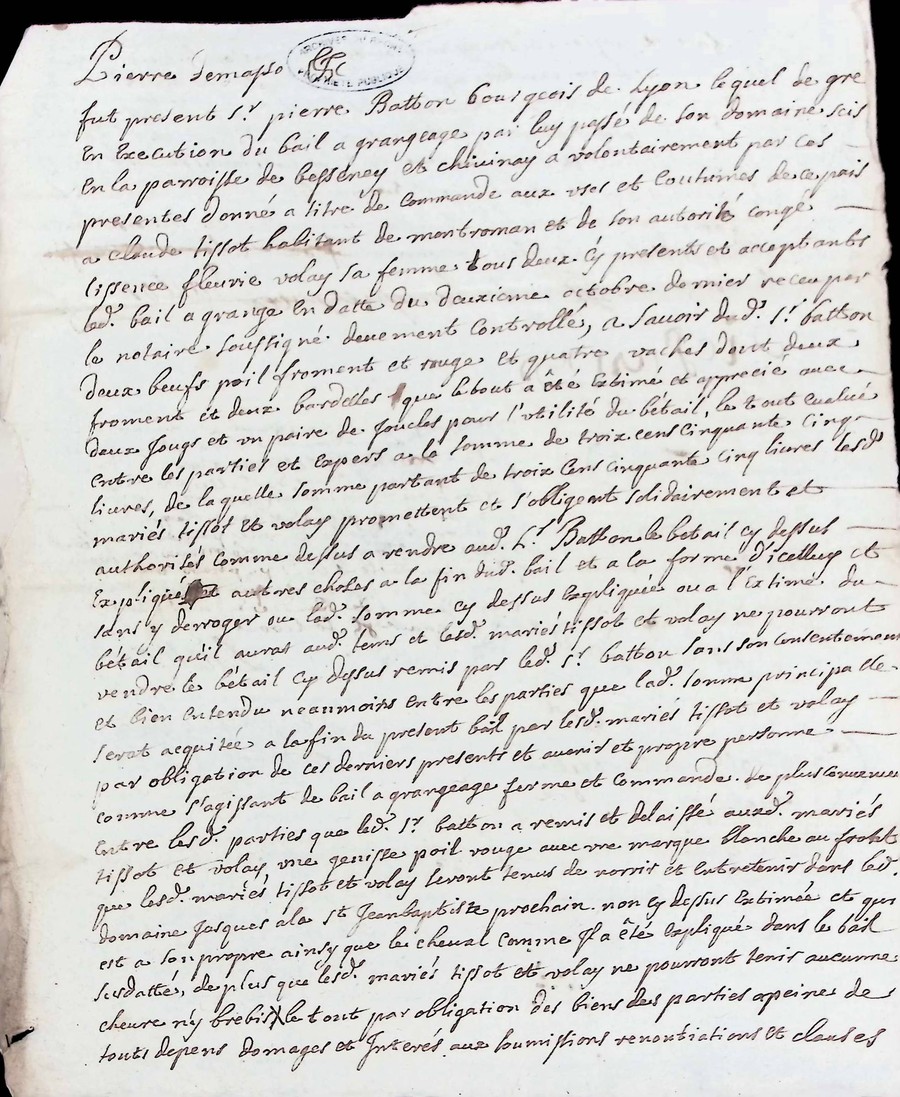 Pierre demasso
fut present Sr. pierre Batton bourgeois de Lyon lequel de gre
En Execution du bail a grangeage par luy passé de son domaine scis
En la parroisse de besseney et chivinay a volontairement par ces
presentes donné a titre de commande aux vses et Coutumes de ce pais
a claude tissot habitant de montroman et de son autorité congé
lissence fleurie volay sa femme tous deux cy presents et acceptants
led. bail a grange En datte du deuxieme octobre dernier receu par
le notaire soussigné deuement Controllé, a Savoir dud. Sr. batton
deux beufs poil froment et rouge et quatre vaches dont deux
froment et deux bardelles que le tout a êté Extimé et apprecié avec
deux Jougs et vn paire de Joucles pour l'vtilité du bétail, le tout evalué
Entre les parties et Expers a la somme de troix cens cinquante cinq
liures, de laquelle somme partant de troix Cens cinquante cinq liures lesd.
mariés tissot et volay promettent et s'obligent solidairement et
authorisés comme dessus a rendre aud. Sr. Batton le betail cy dessus
Expliqués et autres choses a la fin dud. bail et a la forme d'icelluy et
sans y derroger ou lad. somme cy dessus Expliquée ou a l'Extime du
bétail qu'il auras aud. tems et lesd. mariés tissot et volay ne pourront
vendre le bétail cy dessus remis par led. Sr. batton sans son consentement
et bien entendu neaumoins entre les parties que lad. somme principalle
serat acquitée a la fin du present bail par lesd. mariés tissot et volay
par obligation de ces derniers presents et avenir et propre personne
comme s'agissant de bail a grangeage ferme et Commande. de plus Convenu
Entre lesd. parties que led. Sr. batton a remis et delaissé auxd. mariés
tissot et volay vne genisse poil rouge avec vne marque blanche au frohtt
que lesd. mariés tissot et volay seront tenus de norrir et entretenir dans led.
domaine Jusques a la st Jean baptiste prochain non cy dessus Extimée et qui
est a son propre ainsy que le cheval comme Il a êté Expliqué dans le bail
susdatté, de plus que lesd. mariés tissot et volay ne pourront tenir aucunne
cheure n'y brebis le tout par obligation des biens des parties apeine de
touts depens domages et Interés aux soumissions renontiations et clauses